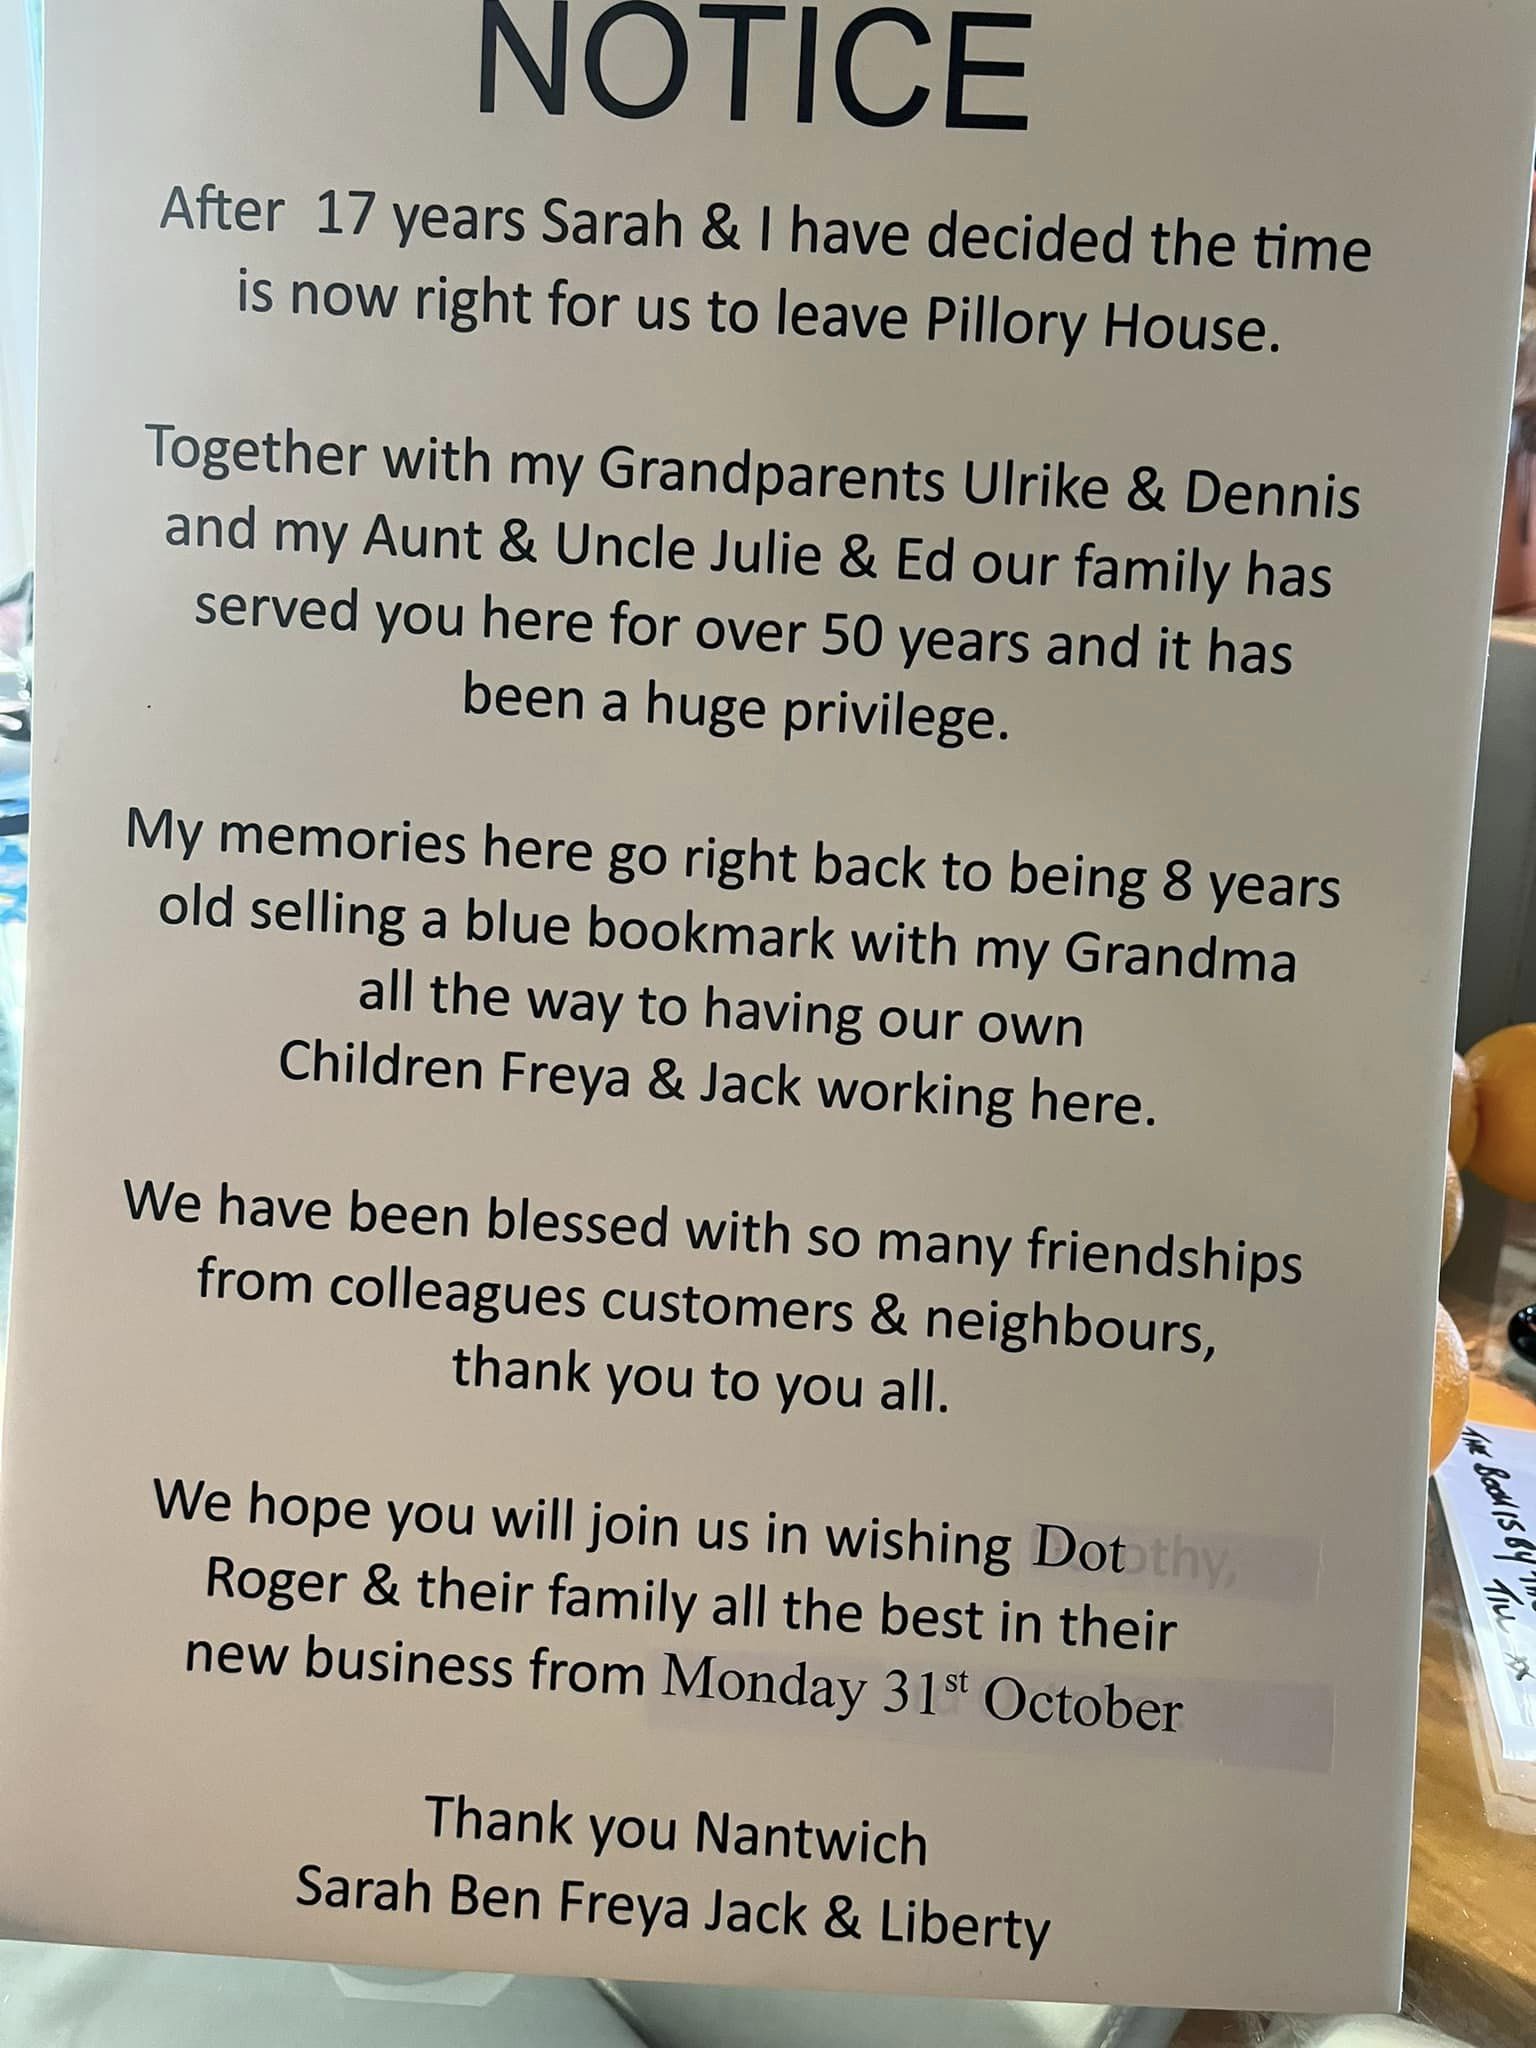 NOTICE
After 17 years Sarah & I have decided the time
is now right for us to leave Pillory House.
Together with my Grandparents Ulrike & Dennis
and my Aunt & Uncle Julie & Ed our family has
served you here for over 50 years and it has
been a huge privilege.
My memories here go right back to being 8 years
old selling a blue bookmark with my Grandma
all the way to having our own
Children Freya & Jack working here.
We have been blessed with so many friendships
from colleagues customers & neighbours,
thank you to you all.
We hope you will join us in wishing Dot
Roger & their family all the best in their
new business from Monday 31st October
Thank you Nantwich
Sarah Ben Freya Jack & Liberty
THE BOOK IS BY